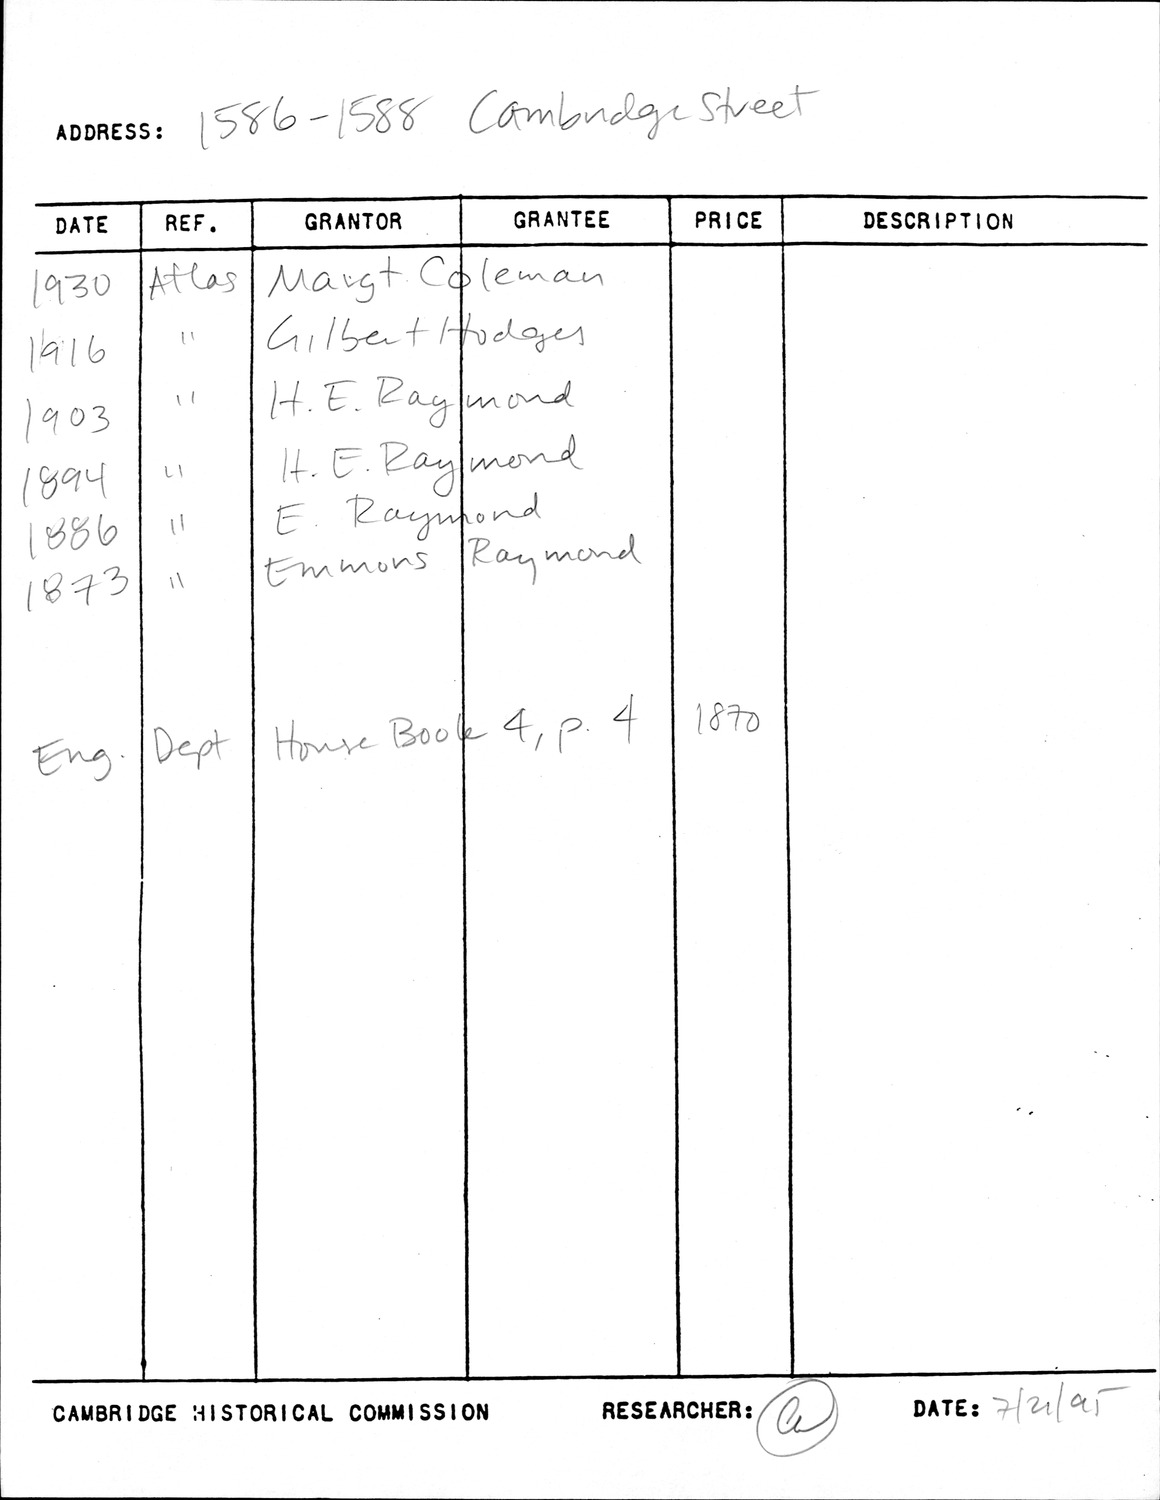 ADDRESS: 1586-1588 Cambridge Street
DATE REF. GRANTOR GRANTEE PRICE DESCRIPTION
1930 Atlas Margt. Coleman
1916 " Gilbert Hodges
1903 " H. E. Raymond
1894 " H. E. Raymond
1886 " E. Raymond
1873 " Emmons Raymond
Eng. Dept House Book 4, p. 4 1870
CAMBRIDGE HISTORICAL COMMISSION RESEARCHER: DATE: 7/21/95